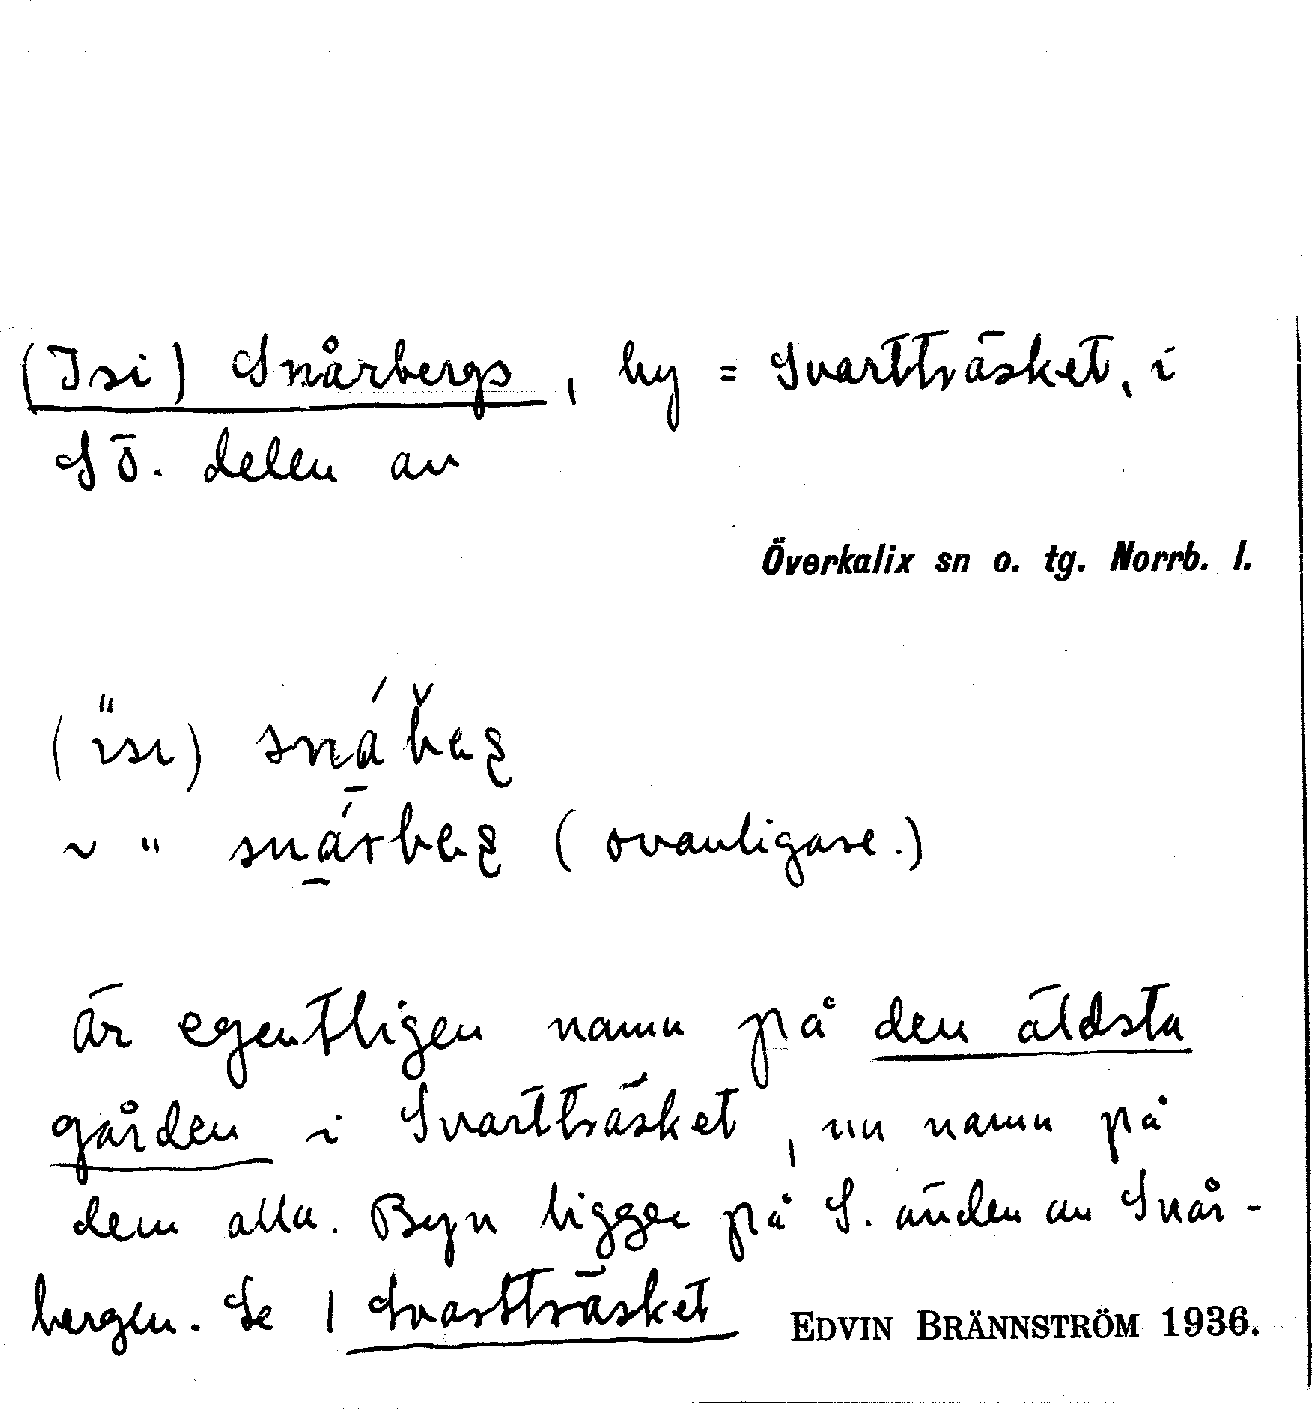 (Isi) Snårbergs, by = Svartträsket, i
SÖ. delen av
Överkalix sn o. tg. Norrb. l.
(isi)
~ " (ovanligare.)
är egentligen namn på den äldsta
gården i Svartträsket, nu namn på
dem alla. Byn ligger på S. änden av Snår-
bergen. Se 1 Svartträsket
EDVIN BRÄNNSTRÖM 1936.